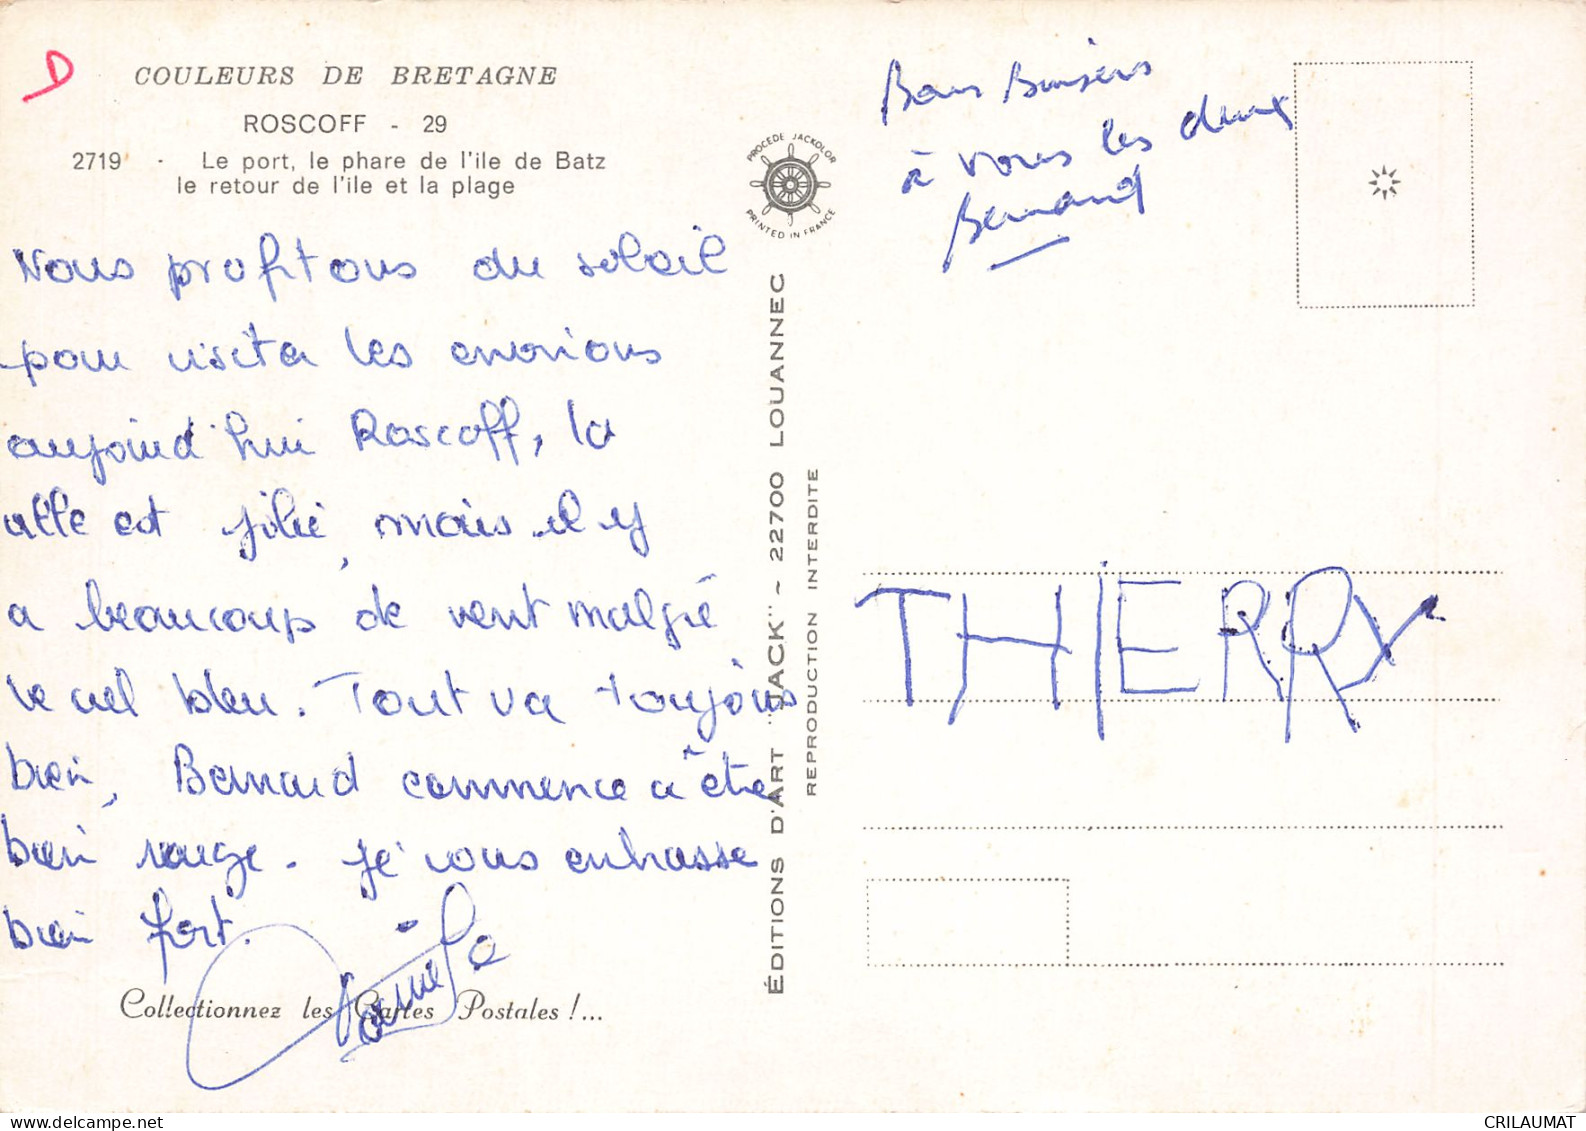 D
COULEURS DE BRETAGNE
ROSCOFF - 29
2719 - Le port, le phare de l'ile de Batz
le retour de l'ile et la plage
Nous profitons du soleil
pour visiter les environs
aujourd'hui Roscoff, la
ville est jolie, mais il y
a beaucoup de vent malgré
le ciel bleu. Tout va toujours
bien, Bernard commence à être
bien rouge. Je vous embrasse
bien fort.
Danièle
Collectionnez les Cartes Postales !...
PROCEDE JACKOLOR
PRINTED IN FRANCE
ÉDITIONS D'ART "JACK" ~ 22700 LOUANNEC
REPRODUCTION INTERDITE
Bons Baisers
à vous les deux
Bernard
THIERRY
CRILAUMAT